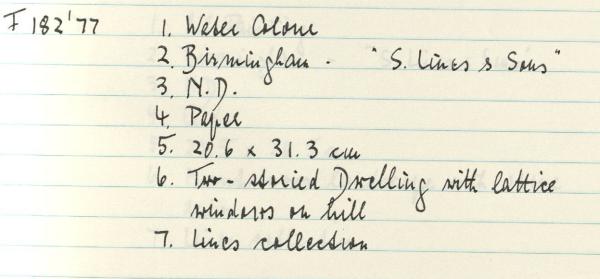 F 182'77 1. Water Colour
2. Birmingham. "S. Lines & Sons"
3. N.D.
4. Paper
5. 20.6 x 31.3 cm
6. Two-storied Dwelling with lattice
windows on hill
7. Lines collection